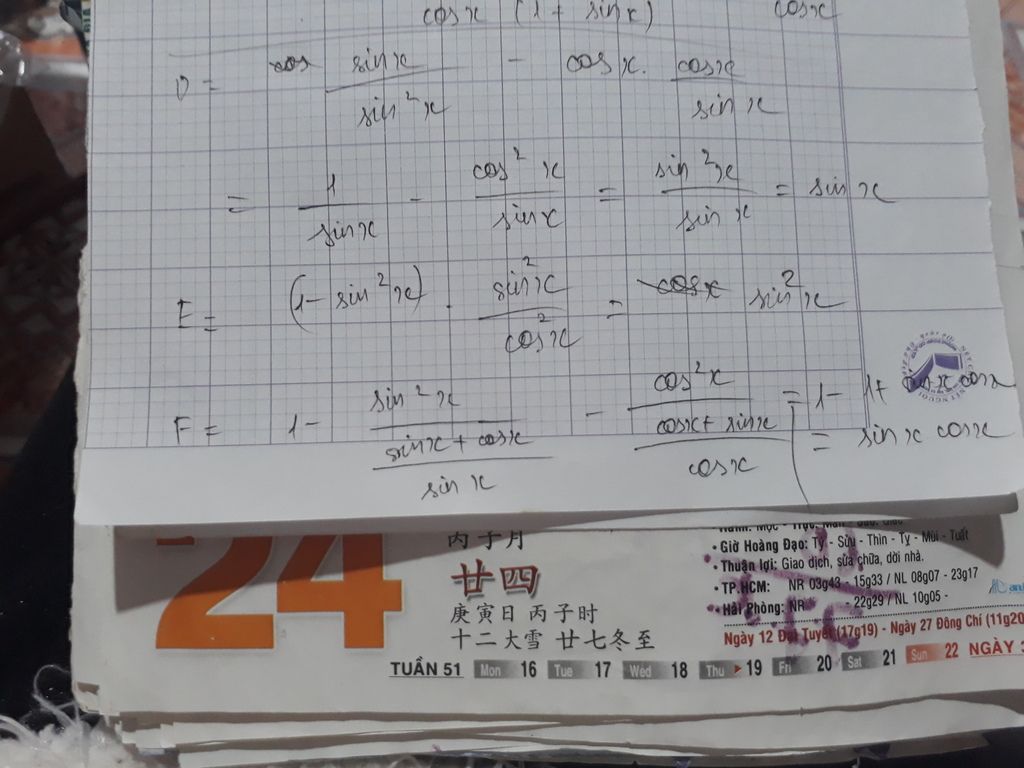 cosx (1 + sinx) cosx
D = sinx / sin²x - cosx. cosx / sinx
= 1 / sinx - cos²x / sinx = sin²x / sinx = sinx
E = (1 - sin²x) . sin²x / cos²x = sin²x
F = 1 - sin²x / (sinx + cosx / sinx) - cos²x / (cosx + sinx / cosx) = 1 - 1 + sinx cosx
= sinx cosx
24
丙子月
廿四
庚寅日 丙子时
十二大雪 廿七冬至
• Giờ Hoàng Đạo: Tý - Sửu - Thìn - Tỵ - Mùi - Tuất
• Thuận lợi: Giao dịch, sửa chữa, dời nhà.
• TP.HCM: NR 03g43 - 15g33 / NL 08g07 - 23g17
• Hải Phòng: NR - 22g29 / NL 10g05 -
Ngày 12 Đại Tuyết (17g19) - Ngày 27 Đông Chí (11g20
TUẦN 51 Mon 16 Tue 17 Wed 18 Thu 19 Fri 20 Sat 21 Sun 22 NGÀY